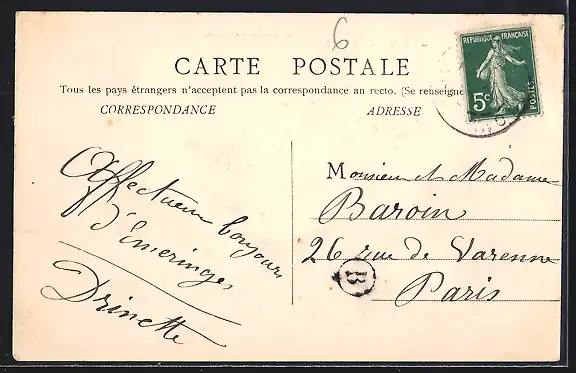 6
CARTE POSTALE
REPUBLIQUE FRANÇAISE
5c
POSTES
Tous les pays étrangers n'acceptent pas la correspondance au recto. (Se renseigne
CORRESPONDANCE
ADRESSE
Affectueux bonjours
d'Emeringes
Drinette
Monsieur et Madame
Baroin
26 rue de Varenne
B
Paris